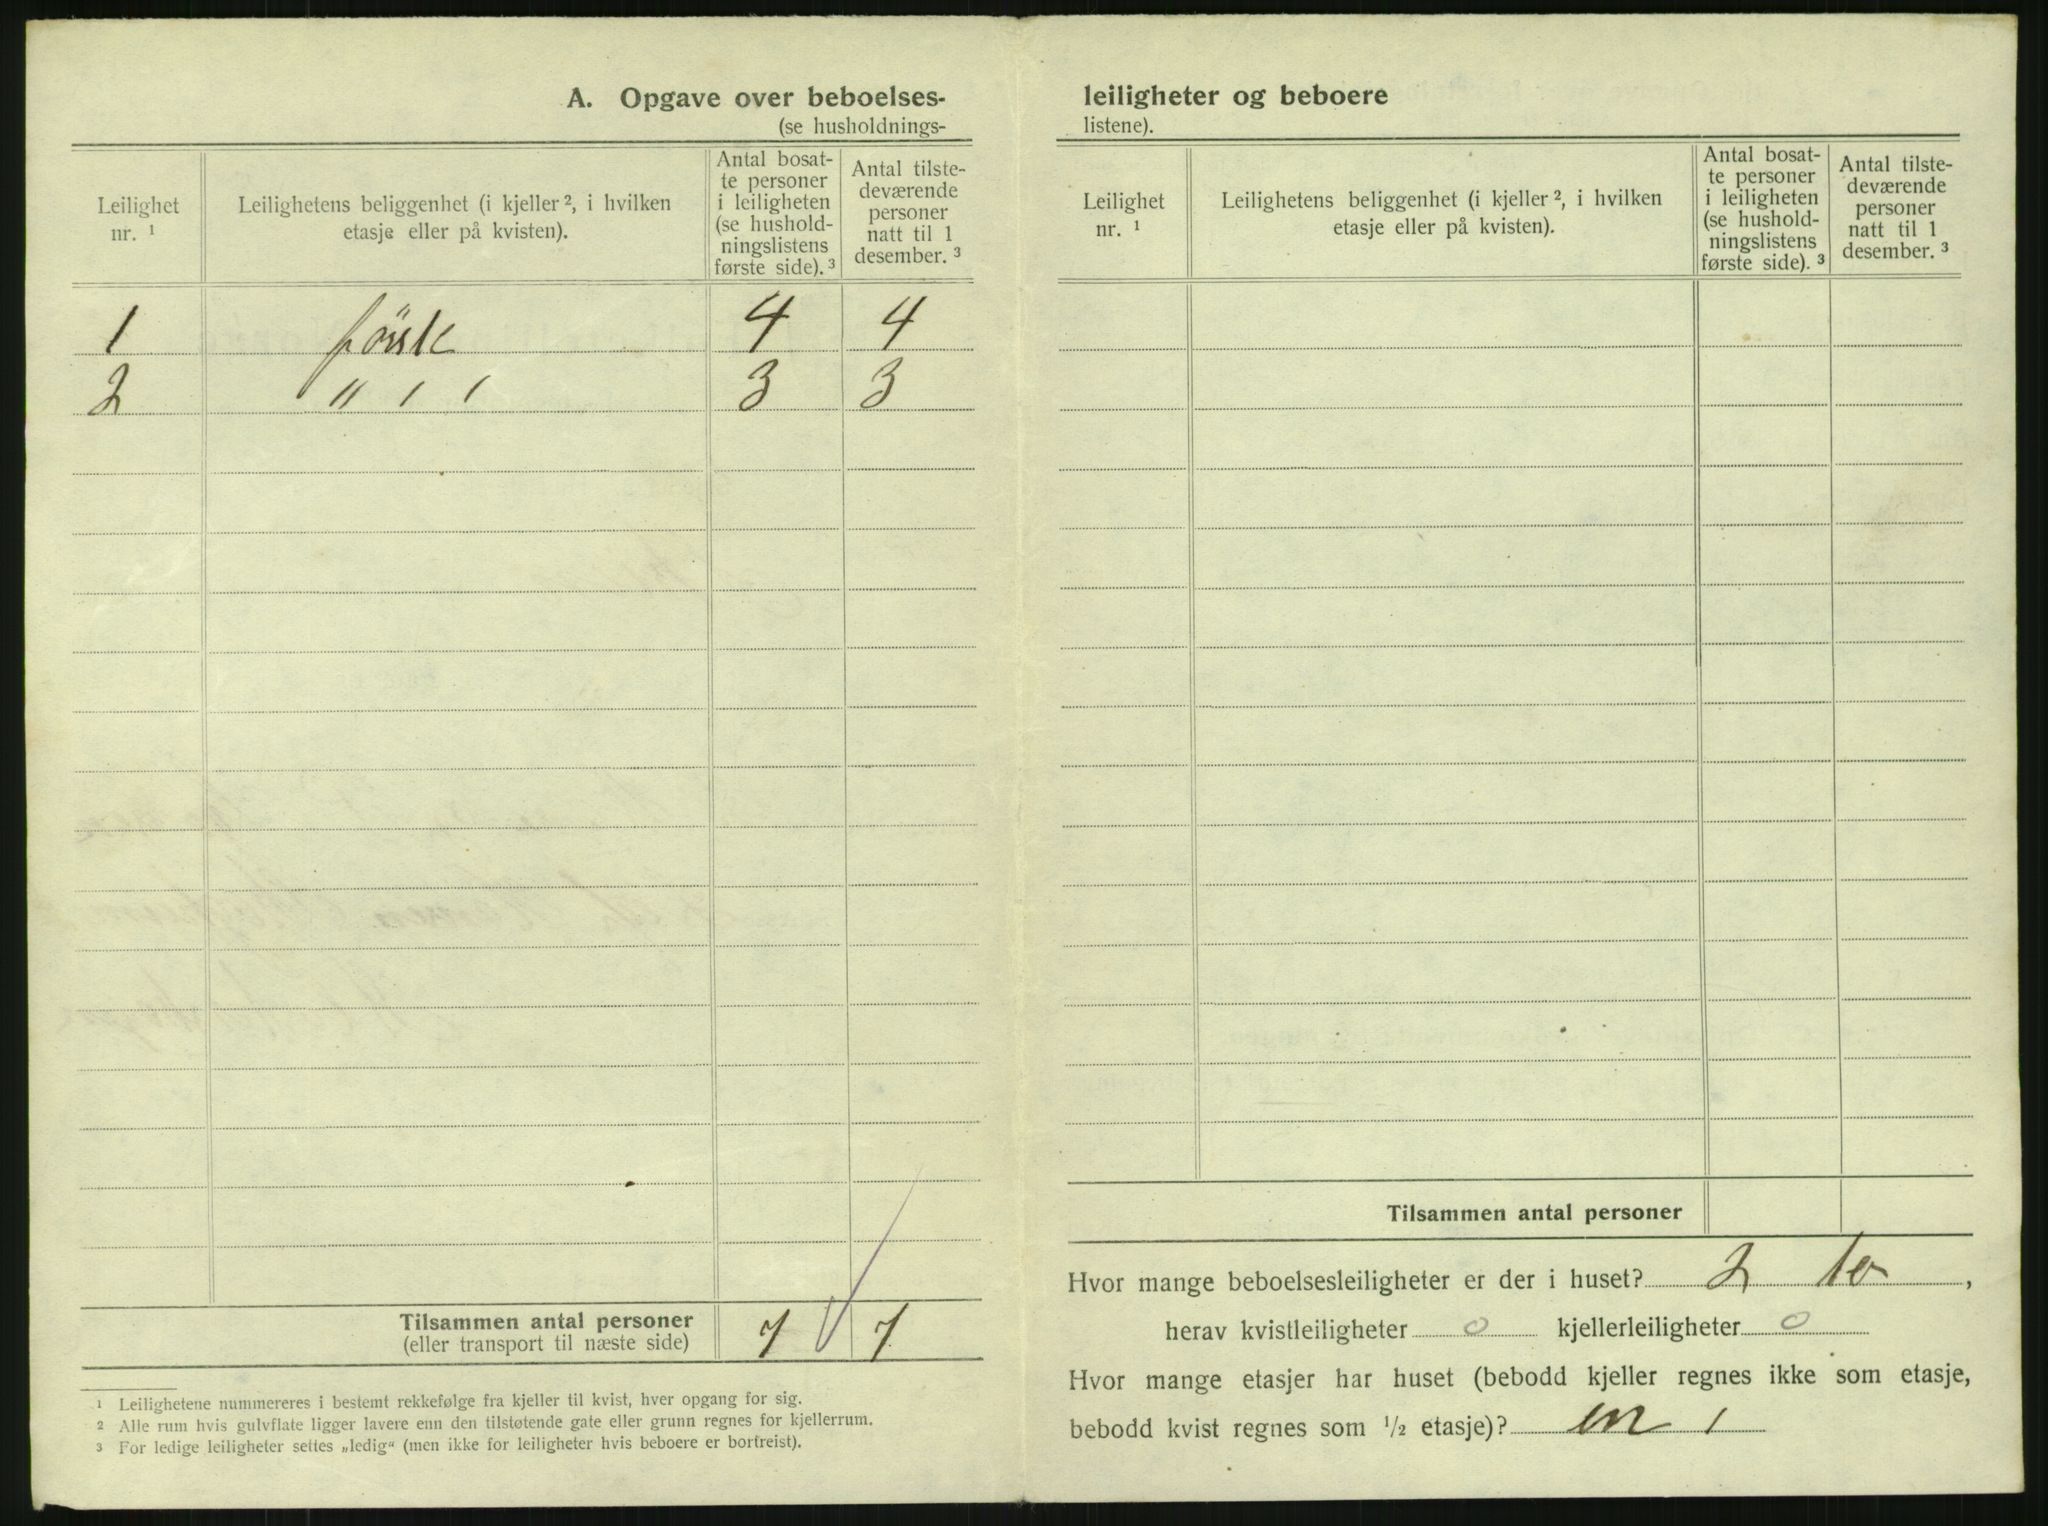 A. Opgave over beboelses-
(se husholdnings-
Leilighet nr. 1
Leilighetens beliggenhet (i kjeller 2, i hvilken etasje eller på kvisten).
Antal bosat-
te personer
i leiligheten
(se hushold-
ningslistens
første side). 3
Antal tilste-
deværende
personer
natt til 1
desember. 3
1 förste 4 4
2 " ' ' 3 3
Tilsammen antal personer
(eller transport til næste side) 7 7
1 Leilighetene nummereres i bestemt rekkefølge fra kjeller til kvist, hver opgang for sig.
2 Alle rum hvis gulvflate ligger lavere enn den tilstøtende gate eller grunn regnes for kjellerrum.
3 For ledige leiligheter settes „ledig“ (men ikke for leiligheter hvis beboere er bortreist).
leiligheter og beboere
listene).
Leilighet nr. 1
Leilighetens beliggenhet (i kjeller 2, i hvilken etasje eller på kvisten).
Antal bosat-
te personer
i leiligheten
(se hushold-
ningslistens
første side). 3
Antal tilste-
deværende
personer
natt til 1
desember. 3
Tilsammen antal personer
Hvor mange beboelsesleiligheter er der i huset? 2 to ,
herav kvistleiligheter 0 kjellerleiligheter 0
Hvor mange etasjer har huset (bebodd kjeller regnes ikke som etasje,
bebodd kvist regnes som 1/2 etasje)? en 1